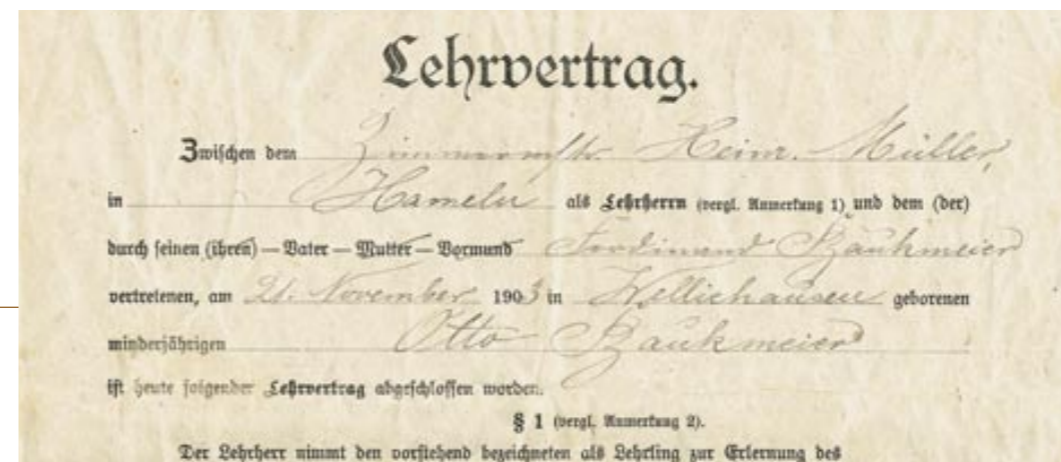 Lehrvertrag.
Zwischen dem Zimmermstr. Heinr. Müller,
in Hameln als Lehrherrn (vergl. Anmerkung 1) und dem (der)
durch seinen (ihren) — Vater — Mutter — Vormund Ferdinand Baukmeier
vertretenen, am 21. November 1903 in Wellichausen geborenen
minderjährigen Otto Baukmeier
ist heute folgender Lehrvertrag abgeschlossen worden.
§ 1 (vergl. Anmerkung 2).
Der Lehrherr nimmt den vorstehend bezeichneten als Lehrling zur Erlernung des